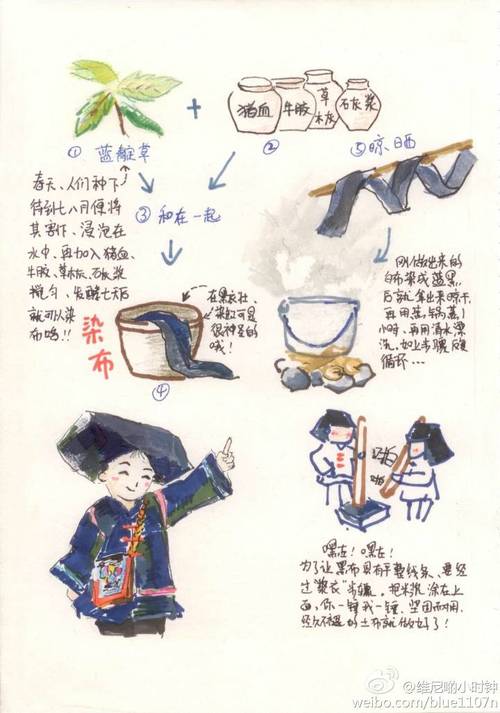 猪血
牛胶
草木灰
石灰浆
① 蓝靛草
②
⑤ 晾、晒
春天、人们种下
待到七八月便将
其割下、浸泡在
水中，再加入猪血、
牛胶、草木灰、石灰浆
搅匀、发酵七天后
就可以染
布啦!!
③ 和在一起
在黑衣壮、
染缸可是
很神圣的
哦!
染布
④
刚做出来的
白布染成蓝黑，
后就拿出来晾干，
再用蒸锅蒸1
小时，再用清水漂
洗，如此步骤反复
循环…
啪
啪
嘿左！嘿左！
为了让黑布具有平整线条、要经
过"浆衣"步骤，把米浆涂在上
面，你一锤我一锤，坚固耐用、
经久不褪的土布就做好了！
@维尼啲小时钟
weibo.com/blue1107n